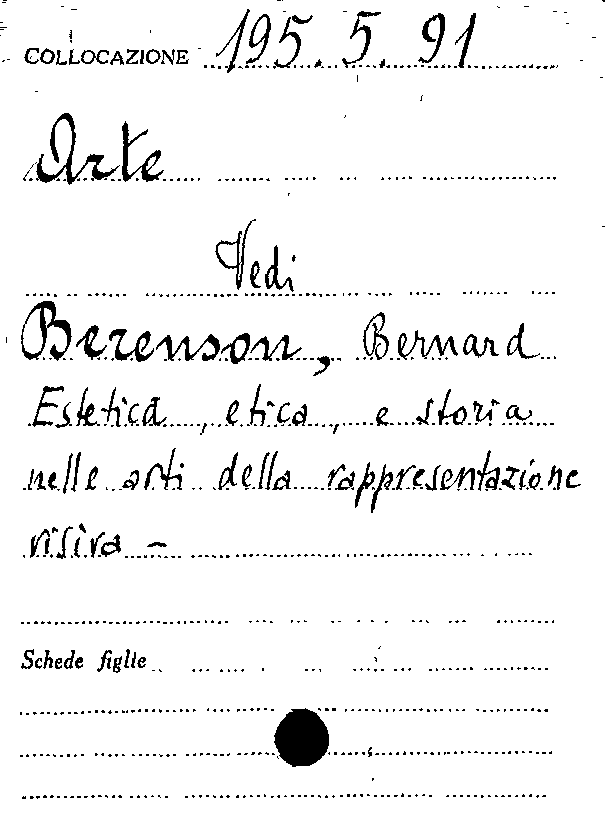 COLLOCAZIONE 195.5.91
Arte
Vedi
Berenson, Bernard
Estetica, etica, e storia
nelle arti della rappresentazione
visiva –
Schede figlie